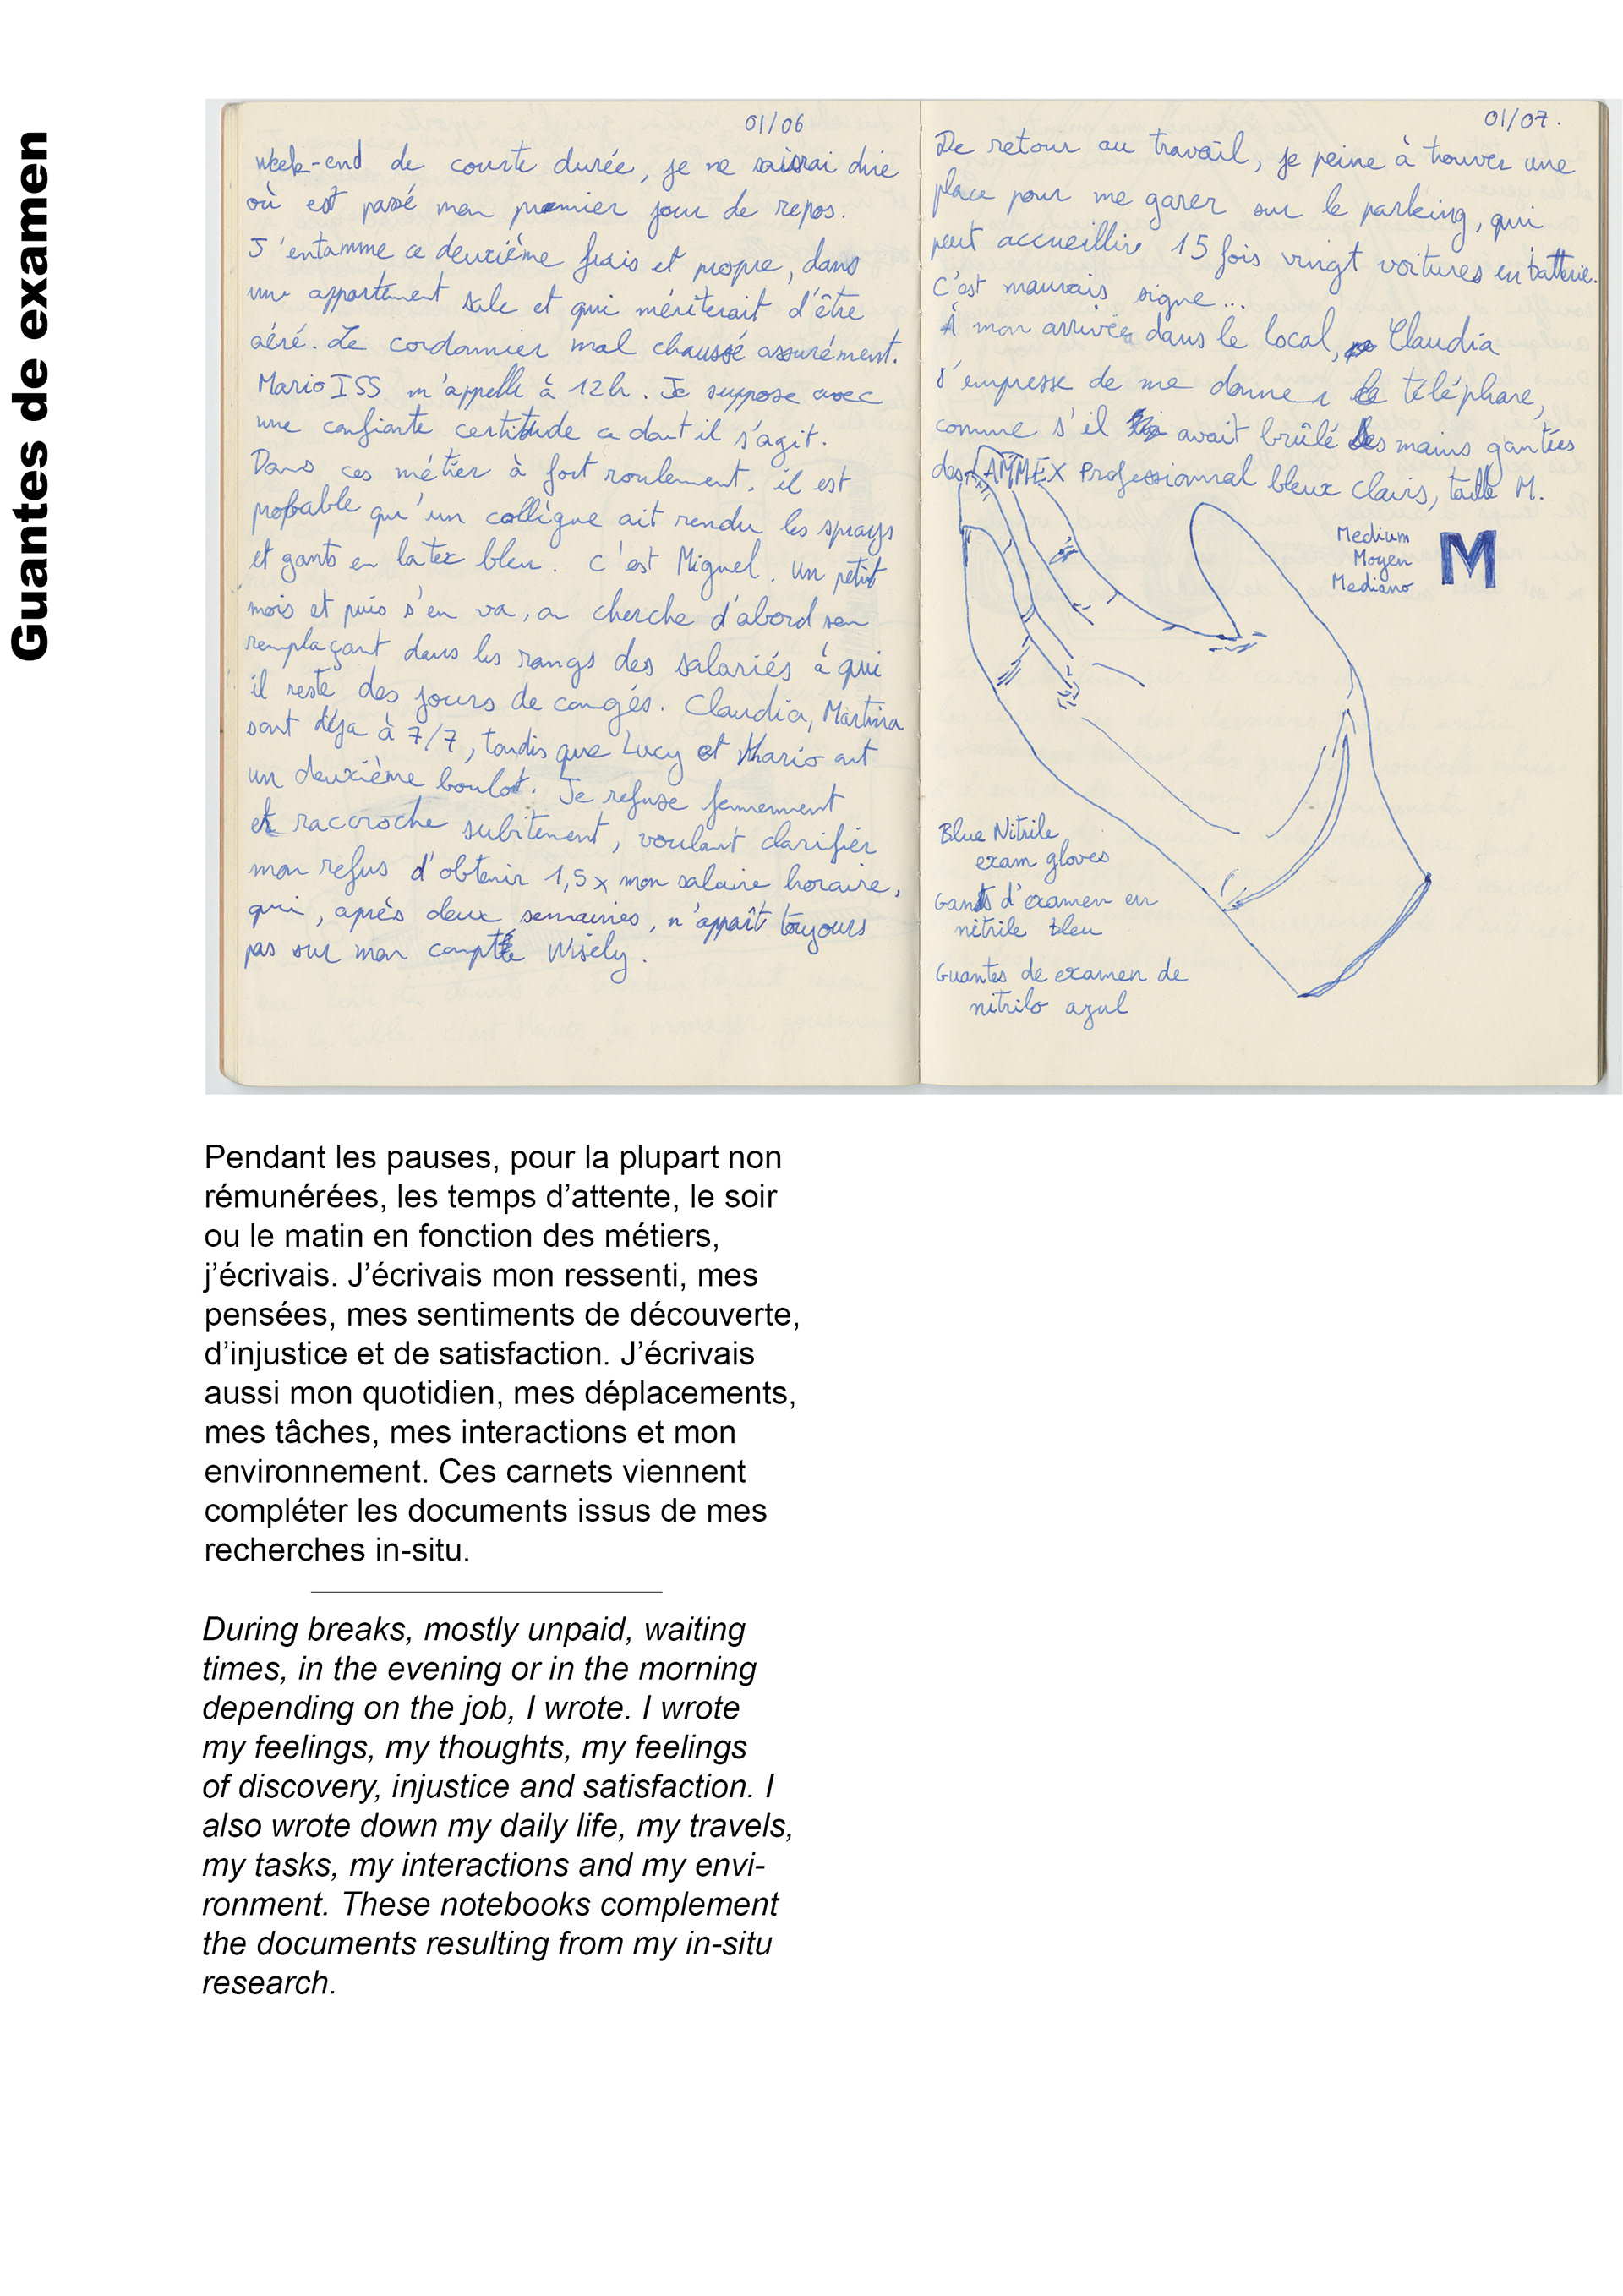 Guantes de examen
01/06
Week-end de courte durée, je ne saisrai dire
où est passé mon premier jour de repos.
J'entamme ce deuxième frais et propre, dans
un appartement sale et qui mériterait d'être
aéré. Le cordonnier mal chaussé assurément.
Mario ISS m'appelle à 12h. Je suppose avec
une confiante certitude ce dont il s'agit.
Dans ces métier à fort roulement, il est
probable qu'un collègue ait rendu les sprays
et gants en latex bleu. C'est Miguel. Un petit
mois et puis s'en va, on cherche d'abord son
remplaçant dans les rangs des salariés à qui
il reste des jours de congés. Claudia, Martina
sont déja à 7/7, tandis que Lucy et Mario ont
un deuxième boulot. Je refuse fermement
et raccroche subitement, voulant clarifier
mon refus d'obtenir 1,5x mon salaire horaire,
qui, après deux semaines, n'appaît toujours
pas sur mon compte Wisely.
01/07.
De retour au travail, je peine à trouver une
place pour me garer sur le parking, qui
peut accueillir 15 fois vingt voitures en batterie.
C'est mauvais signe...
À mon arrivée dans le local, Claudia
s'empresse de me donner le téléphone,
comme s'il avait brûlé les mains gantées
des AMMEX Professionnal bleux clairs, taille M.
Medium
Moyen
Mediano
M
Blue Nitrile
exam gloves
Gants d'examen en
nitrile bleu
Guantes de examen de
nitrilo azul
Pendant les pauses, pour la plupart non
rémunérées, les temps d’attente, le soir
ou le matin en fonction des métiers,
j’écrivais. J’écrivais mon ressenti, mes
pensées, mes sentiments de découverte,
d’injustice et de satisfaction. J’écrivais
aussi mon quotidien, mes déplacements,
mes tâches, mes interactions et mon
environnement. Ces carnets viennent
compléter les documents issus de mes
recherches in-situ.
During breaks, mostly unpaid, waiting
times, in the evening or in the morning
depending on the job, I wrote. I wrote
my feelings, my thoughts, my feelings
of discovery, injustice and satisfaction. I
also wrote down my daily life, my travels,
my tasks, my interactions and my envi-
ronment. These notebooks complement
the documents resulting from my in-situ
research.